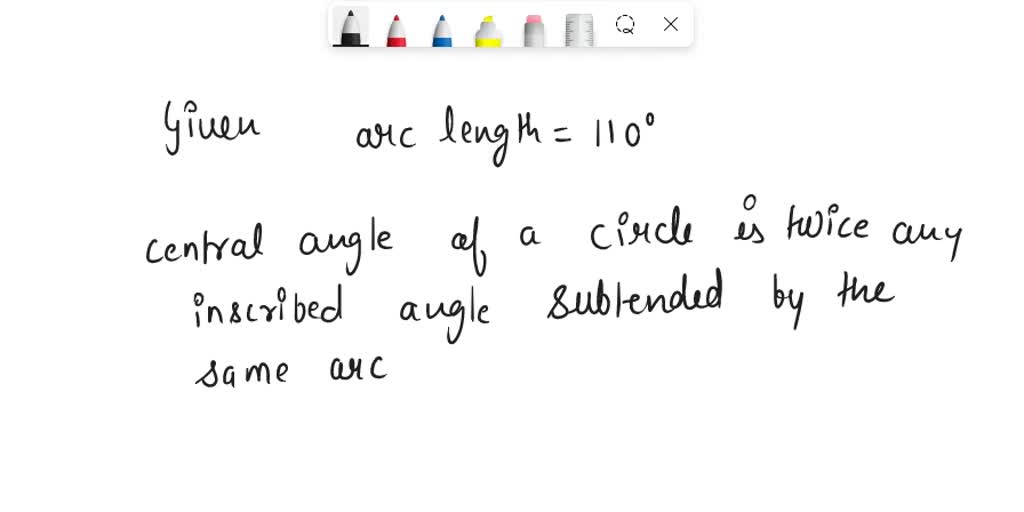 Given arc length = 110°
central angle of a circle is twice any
inscribed angle subtended by the
same arc